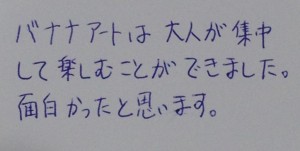 バナナアートは大人が集中
して楽しむことができました。
面白かったと思います。